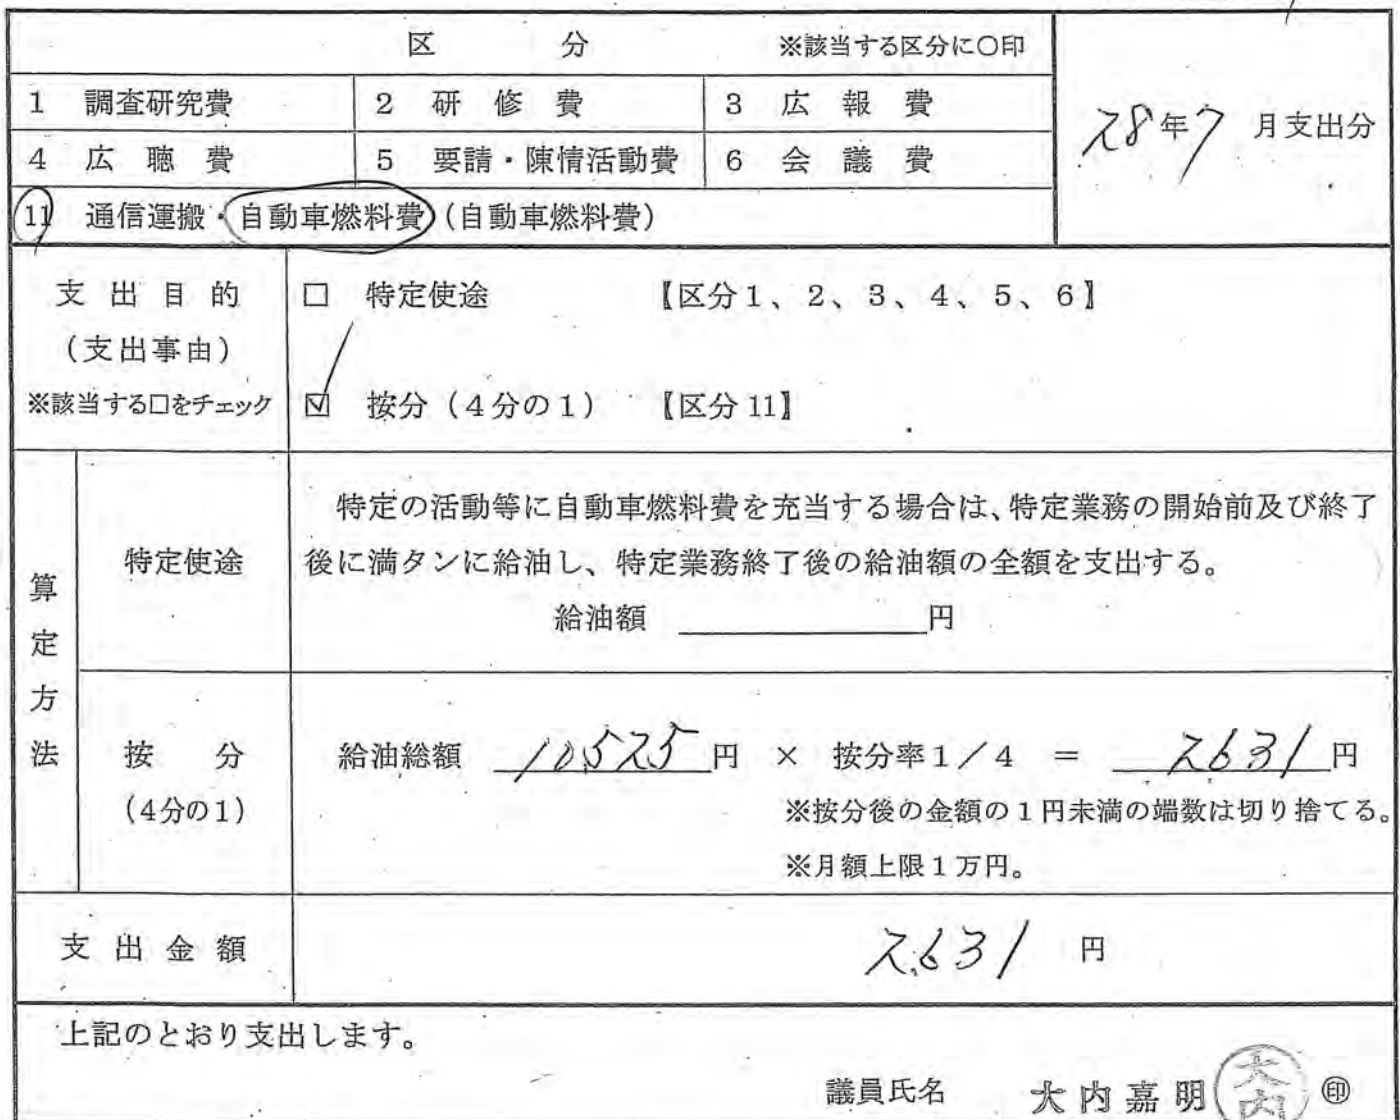 区 分 ※該当する区分に○印
1 調査研究費 2 研修費 3 広報費
28年7月支出分
4 広聴費 5 要請・陳情活動費 6 会議費
11 通信運搬・自動車燃料費(自動車燃料費)
支出目的 □ 特定使途 【区分1、2、3、4、5、6】
(支出事由)
※該当する□をチェック ☑ 按分(4分の1) 【区分11】
算定方法
特定使途
特定の活動等に自動車燃料費を充当する場合は、特定業務の開始前及び終了
後に満タンに給油し、特定業務終了後の給油額の全額を支出する。
給油額 円
按分 給油総額 10525円 × 按分率1/4 = 2631円
(4分の1) ※按分後の金額の1円未満の端数は切り捨てる。
※月額上限1万円。
支出金額 2631 円
上記のとおり支出します。
議員氏名 大内嘉明 大内 ㊞